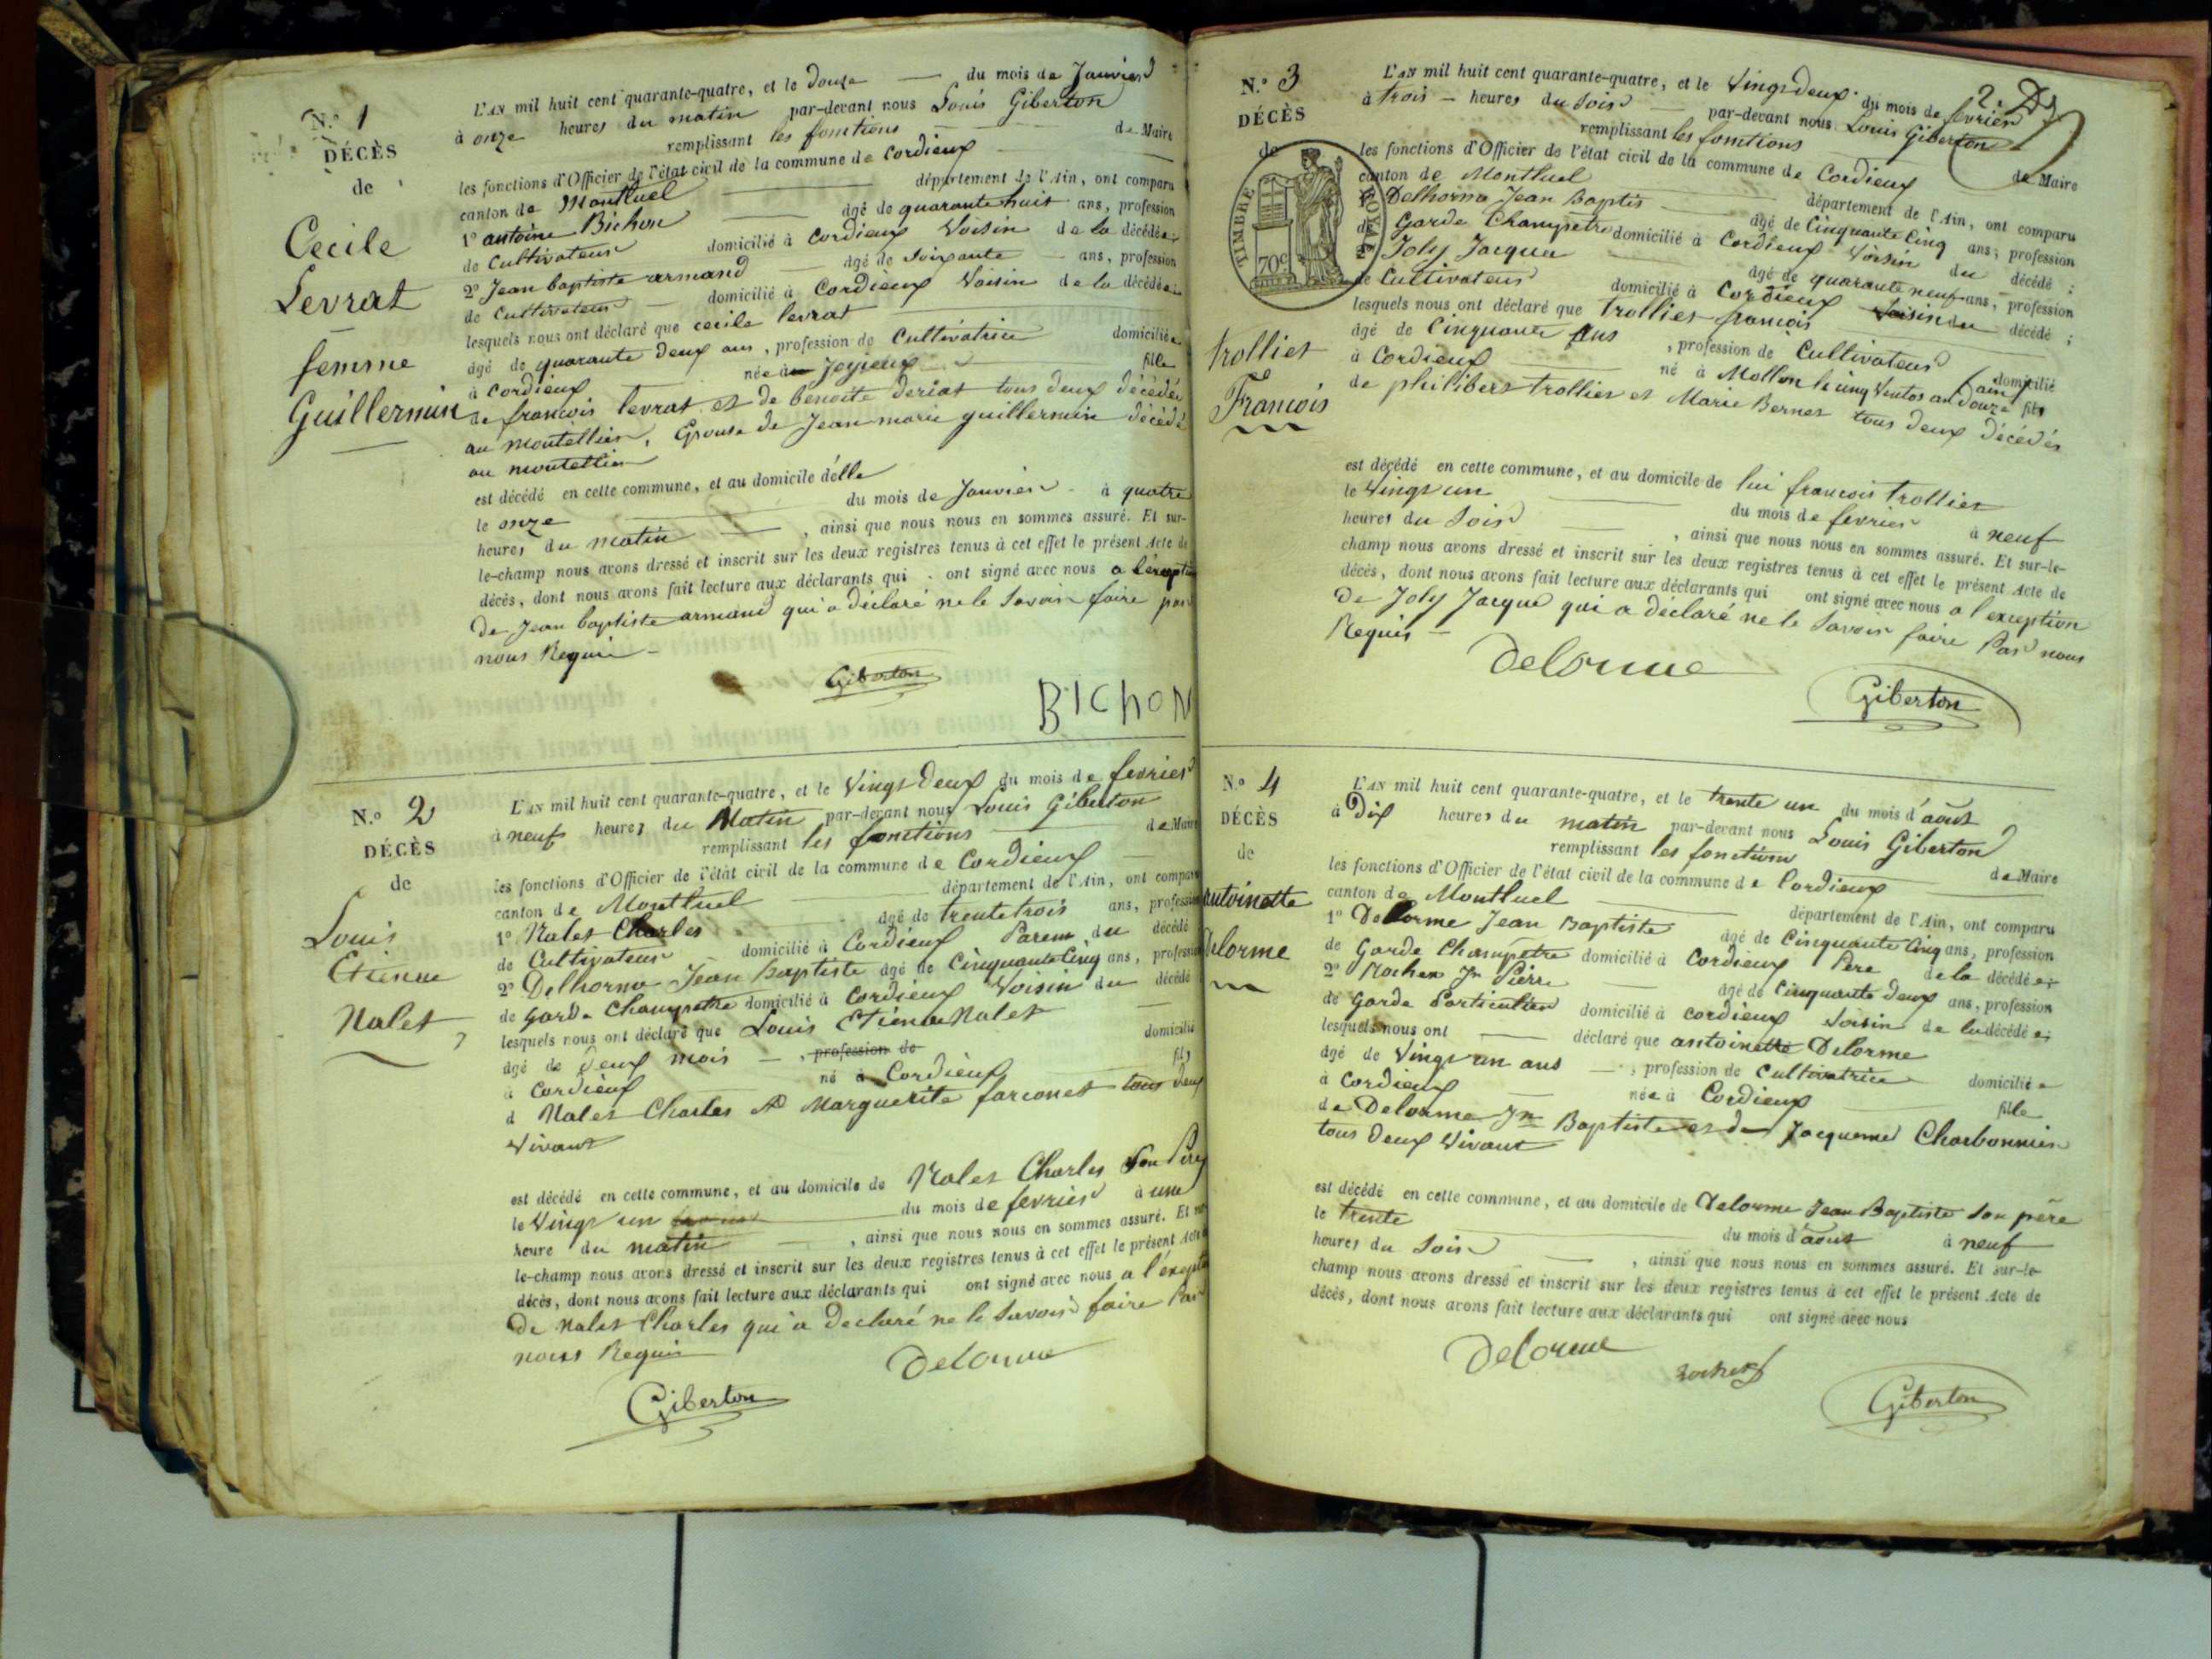 N.º 1
DÉCÈS
de
Cecile
Levrat
femme
Guillermin
L'AN mil huit cent quarante-quatre, et le Douze du mois de Janvier
à onze heures du matin par-devant nous Louis Giberton
remplissant les fonctions de Maire
les fonctions d'Officier de l'état civil de la commune de Cordieux
canton de Montluel département de l'Ain, ont comparu
1º antoine Bichon âgé de quarante huit ans, profession
de Cultivateur domicilié à Cordieux Voisin de la décédée;
2º Jean baptiste armand âgé de Soixante ans, profession
de Cultivateur domicilié à Cordieux Voisin de la décédée;
lesquels nous ont déclaré que cecile levrat
âgé de quarante deux ans, profession de Cultivatrice domiciliée
à Cordieux née à Joyieux fille
de francois levrat et de benoite deriat tous deux décédés
au montellier, Epouse de Jean marie guillermin décédé
au montellier
est décédé en cette commune, et au domicile d'elle
le onze du mois de Janvier à quatre
heures du matin, ainsi que nous nous en sommes assuré. Et sur-
le-champ nous avons dressé et inscrit sur les deux registres tenus à cet effet le présent Acte de
décès, dont nous avons fait lecture aux déclarants qui ont signé avec nous a l'exception
De Jean baptiste armand qui a déclaré ne le Savoir faire par
nous Requis
Giberton
BIChON
N.º 2
DÉCÈS
de
Louis
Etienne
Nalet
L'AN mil huit cent quarante-quatre, et le Vingt Deux du mois de fevrier
à neuf heures du Matin par-devant nous Louis Giberton
remplissant les fonctions de Maire
les fonctions d'Officier de l'état civil de la commune de Cordieux
canton de Montluel département de l'Ain, ont comparu
1º Nalet Charles âgé de trente trois ans, profession
de Cultivateur domicilié à Cordieux Parent du décédé
2º Delhorme Jean Baptiste âgé de Cinquante Cinq ans, profession
de Garde Champetre domicilié à Cordieux Voisin du décédé
lesquels nous ont déclaré que Louis Etienne Nalet
âgé de Deux mois, profession de domicilié
à Cordieux né à Cordieux fils
d Nalet Charles et Marguerite farconet tous deux
Vivant
est décédé en cette commune, et au domicile de Nalet Charles Son Père
le Vingt un du mois de fevrier à une
heure du matin, ainsi que nous nous en sommes assuré. Et sur-
le-champ nous avons dressé et inscrit sur les deux registres tenus à cet effet le présent Acte de
décès, dont nous avons fait lecture aux déclarants qui ont signé avec nous a l'exception
De Nalet Charles qui a declaré ne le Savoir faire Par
nous Requis
Delorme
Giberton
2
N.º 3
DÉCÈS
de
TIMBRE ROYAL
70c
trolliet
Francois
L'AN mil huit cent quarante-quatre, et le Vingt Deux du mois de fevrier
à trois heures du Soir par-devant nous Louis Giberton
remplissant les fonctions de Maire
les fonctions d'Officier de l'état civil de la commune de Cordieux
canton de Montluel département de l'Ain, ont comparu
1º Delhorme Jean Baptis âgé de Cinquante Cinq ans, profession
de Garde Champetre domicilié à Cordieux Voisin du décédé;
2º Joly Jacque âgé de quarante neuf ans, profession
de Cultivateur domicilié à Cordieux Voisin du décédé;
lesquels nous ont déclaré que trollier francois
âgé de Cinquante ans, profession de Cultivateur domicilié
à Cordieux né à Mollon le cinq Ventos an douze (ain) fils
de philibert trollier et Marie Bernet tous deux décédés
est décédé en cette commune, et au domicile de lui francois trollier
le Vingt un du mois de fevrier à neuf
heures du Soir, ainsi que nous nous en sommes assuré. Et sur-le-
champ nous avons dressé et inscrit sur les deux registres tenus à cet effet le présent Acte de
décès, dont nous avons fait lecture aux déclarants qui ont signé avec nous a l'exception
De Joly Jacque qui a déclaré ne le Savoir faire Par nous
Requis
Delorme
Giberton
N.º 4
DÉCÈS
de
antoinette
Delorme
L'AN mil huit cent quarante-quatre, et le trente un du mois d'août
à Dix heures du matin par-devant nous Louis Giberton
remplissant les fonctions de Maire
les fonctions d'Officier de l'état civil de la commune de Cordieux
canton de Montluel département de l'Ain, ont comparu
1º Delorme Jean Baptiste âgé de Cinquante Cinq ans, profession
de Garde Champêtre domicilié à Cordieux Père de la décédée;
2º Rochex Jn Pierre âgé de Cinquante deux ans, profession
de Garde Particulier domicilié à cordieux Voisin de la décédée;
lesquels nous ont déclaré que antoinette Delorme
âgé de Vingt un ans, profession de Cultivatrice domiciliée
à Cordieux née à Cordieux fille
de Delorme Jn Baptiste et de Jacqueme Charbonnier
tous deux Vivant
est décédé en cette commune, et au domicile de Delorme Jean Baptiste son père
le trente du mois d'août à neuf
heures du Soir, ainsi que nous nous en sommes assuré. Et sur-le-
champ nous avons dressé et inscrit sur les deux registres tenus à cet effet le présent Acte de
décès, dont nous avons fait lecture aux déclarants qui ont signé avec nous
Delorme
Rochex
Giberton